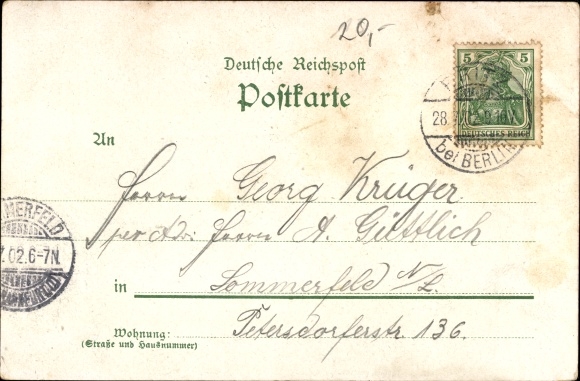 20,-
Deutsche Reichspost
Postkarte
5 5
DEUTSCHES REICH
28.
bei BERLIN
An
Herrn Georg Krüger
per Adr. Herrn A. Güttlich
MERFELD
02.6-7N.
in Sommerfeld N/L.
Wohnung: Petersdorferstr. 136.
(Straße und Hausnummer)